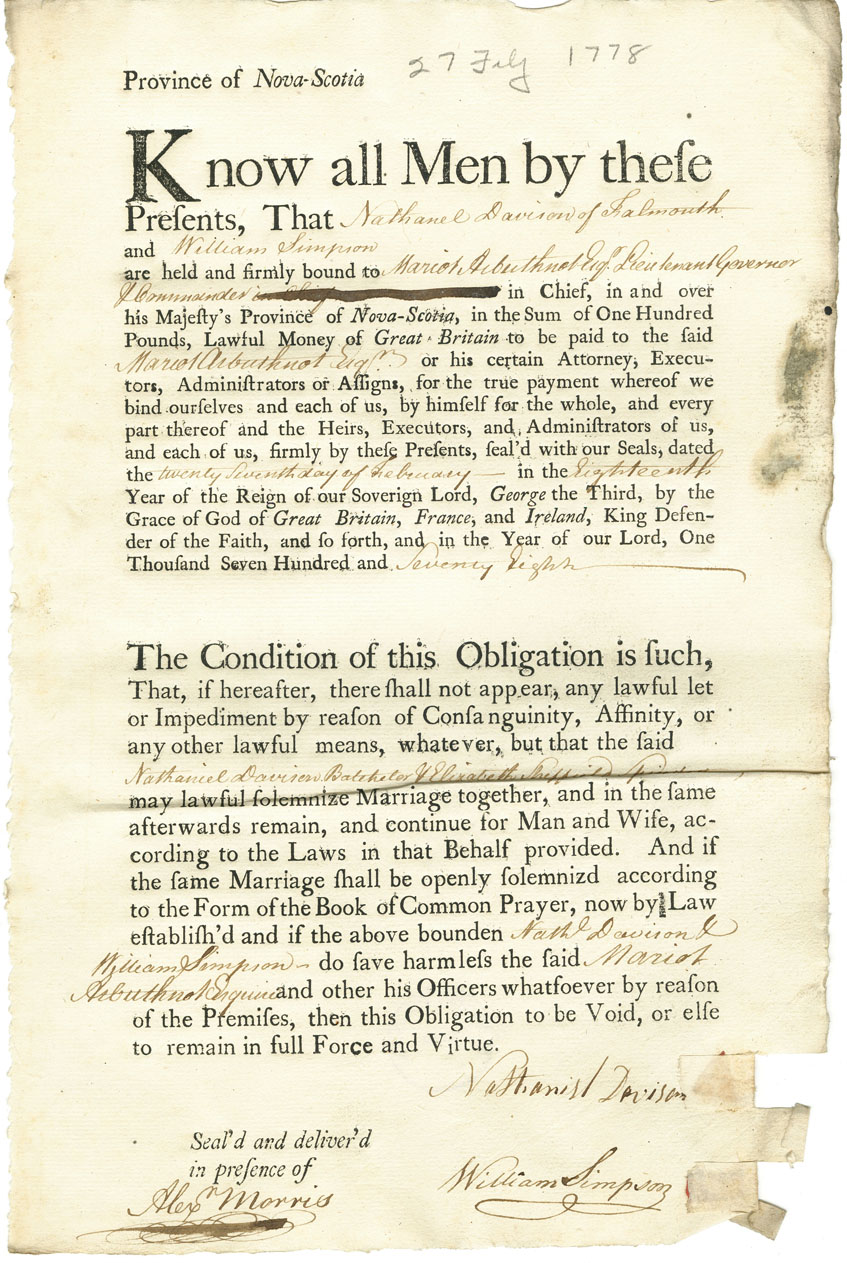 27 Feby 1778
Province of Nova-Scotia
Know all Men by theſe
Preſents, That Nathanel Davison of Falmouth
and William Simpson
are held and firmly bound to Mariot Arbuthnot Esqr. Lieutenant Governor
& Commander in Chief, in and over
his Majeſty's Province of Nova-Scotia, in the Sum of One Hundred
Pounds, Lawful Money of Great-Britain to be paid to the ſaid
Mariot Arbuthnot Esqr. or his certain Attorney, Execu-
tors, Adminiſtrators or Aſſigns, for the true payment whereof we
bind ourſelves and each of us, by himſelf for the whole, and every
part thereof and the Heirs, Executors, and, Adminiſtrators of us,
and each of us, firmly by theſe Preſents, ſeal'd with our Seals, dated
the twenty Seventh day of February in the Eighteenth
Year of the Reign of our Soverign Lord, George the Third, by the
Grace of God of Great Britain, France, and Ireland, King Defen-
der of the Faith, and ſo forth, and in the Year of our Lord, One
Thouſand Seven Hundred and Seventy Eight
The Condition of this Obligation is ſuch,
That, if hereafter, there ſhall not appear, any lawful let
or Impediment by reaſon of Conſanguinity, Affinity, or
any other lawful means, whatever, but that the ſaid
Nathaniel Davison Batchelor & Elizabeth
may lawful ſolemnize Marriage together, and in the ſame
afterwards remain, and continue for Man and Wife, ac-
cording to the Laws in that Behalf provided. And if
the ſame Marriage ſhall be openly ſolemnizd according
to the Form of the Book of Common Prayer, now by Law
eſtabliſh'd and if the above bounden Nathl Davison &
William Simpson do ſave harmleſs the ſaid Mariot
Arbuthnot Esquire and other his Officers whatſoever by reaſon
of the Premiſes, then this Obligation to be Void, or elſe
to remain in full Force and Virtue.
Nathaniel Davison
Seal'd and deliver'd
in preſence of
William Simpson
Alexr Morris